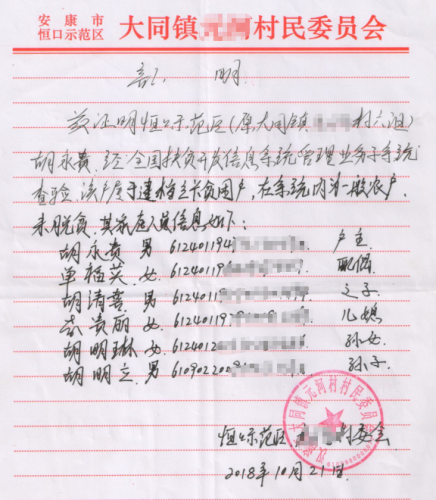 安康市
恒口示范区 大同镇元河村民委员会
证 明
兹证明恒口示范区(原大同镇 村六组)
胡永贵,经全国扶贫开发信息系统管理业务子系统
查验,该户属于建档立卡贫困户,在系统内为一般农户,
未脱贫,其家庭人员信息如下:
胡永贵 男 612401194 户主
单栢英 女 61240119 配偶
胡清喜 男 6124011 之子
贵丽 女 612401197 儿媳
胡明琳 女 612401 孙女
胡明立 男 61090220 孙子
恒口示范区 村委会
2018年10月21日
大同镇元河村村民委员会